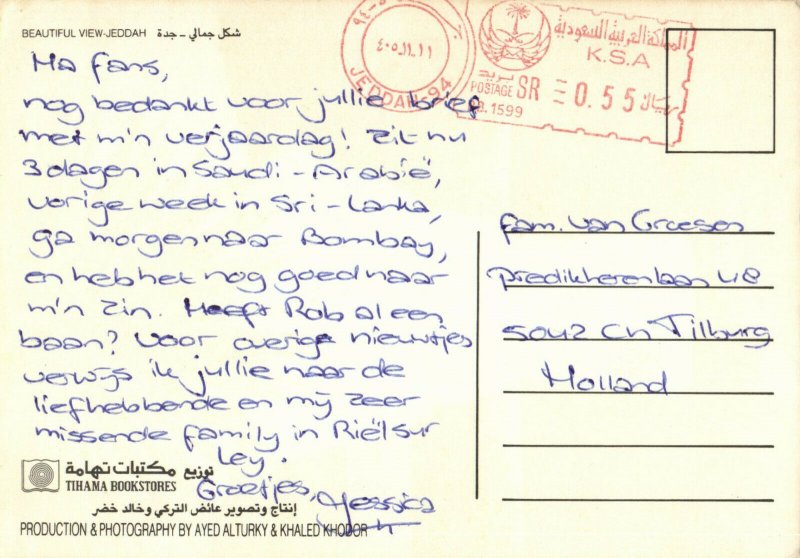 BEAUTIFUL VIEW-JEDDAH شكل جمالي - جدة
Ha fans,
nog bedankt voor jullie brief
met m'n verjaardag! Zit nu
3 dagen in Saudi-Arabië,
vorige week in Sri-Lanka,
ga morgen naar Bombay,
en heb het nog goed naar
m'n zin. Heeft Rob al een
baan? Voor overige nieuwtjes
verwijs ik jullie naar de
liefhebbende en mij zeer
missende family in Riël sur
Ley.
Groetjes, Jessica
توزيع مكتبات تهامة
TIHAMA BOOKSTORES
إنتاج وتصوير عائض التركي وخالد خضر
PRODUCTION & PHOTOGRAPHY BY AYED ALTURKY & KHALED KHODOR
٤٠٥.١١.١١
JEDDAH 94
المملكة العربية السعودية
K.S.A
بريد
POSTAGE SR 0.55 ريال
1599
fam. van Groesen
Predikherenlaan 48
5042 CH Tilburg
Holland